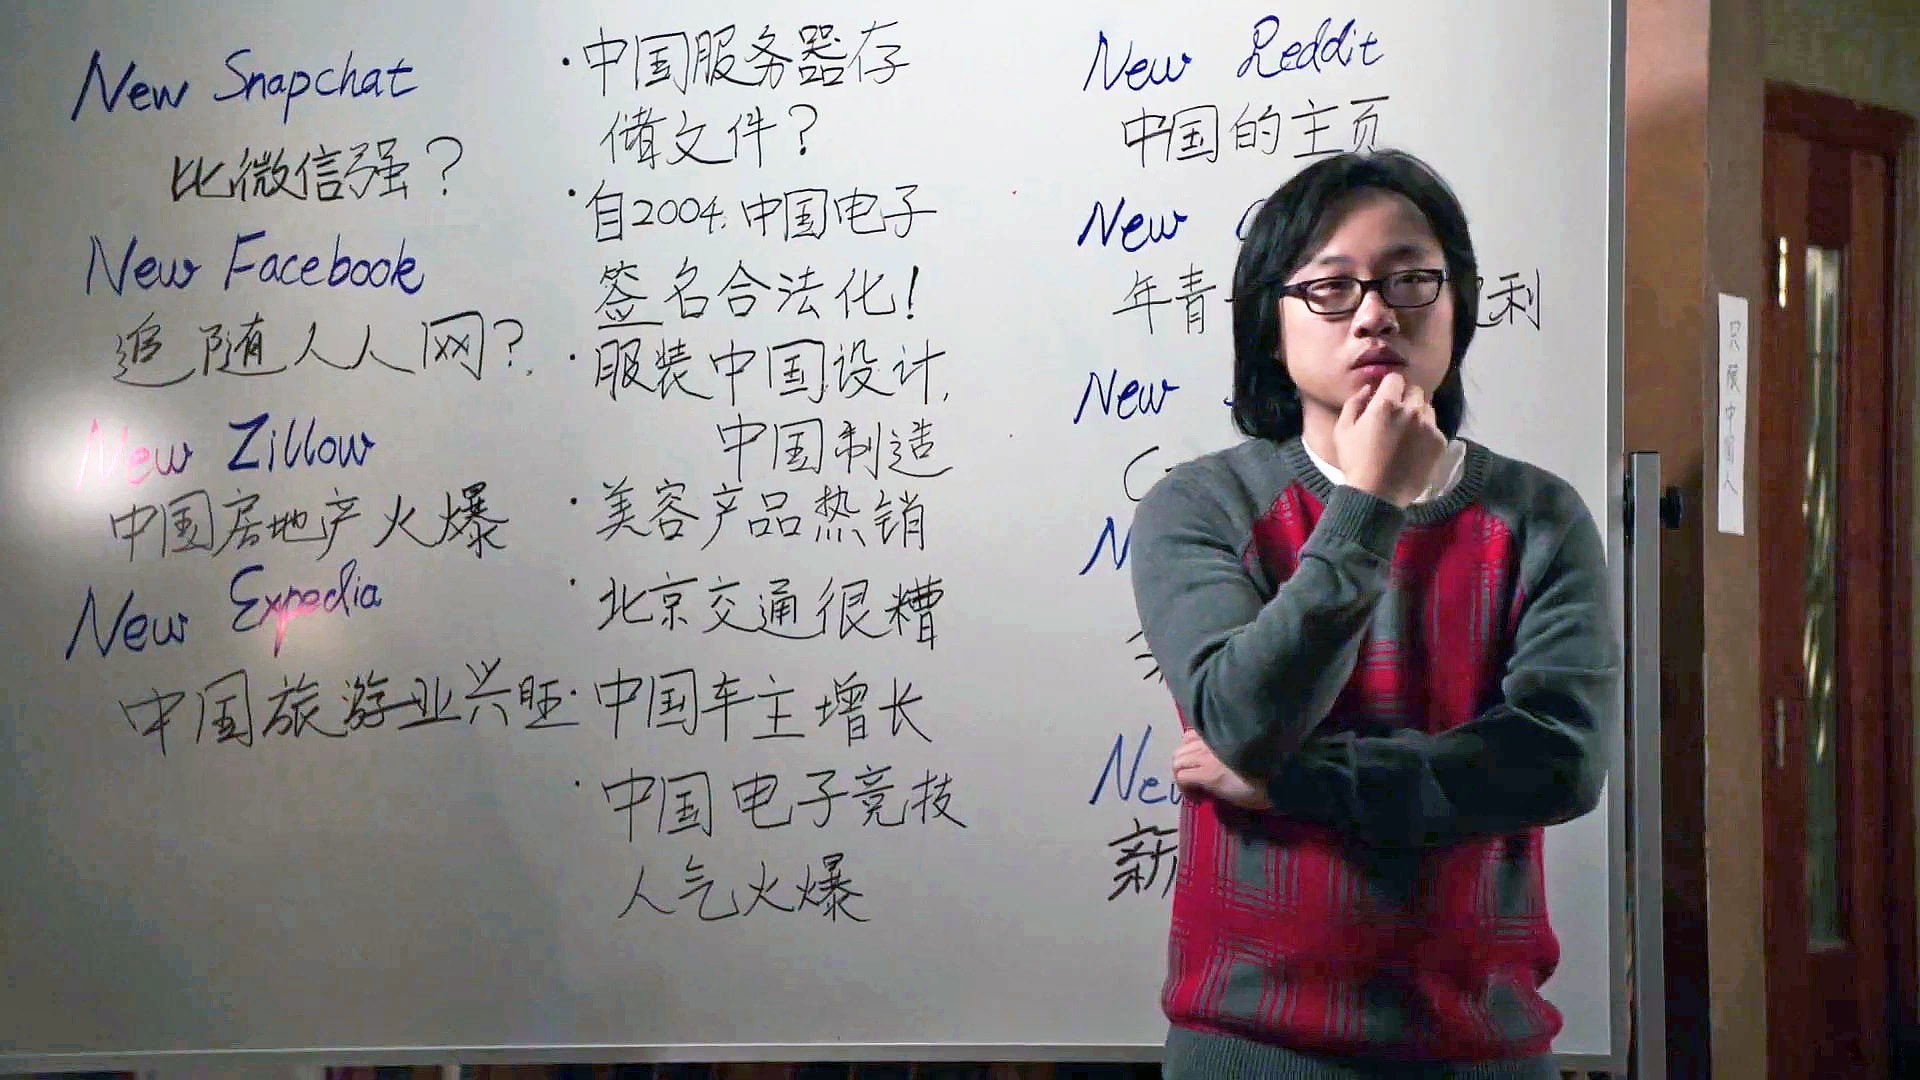 New Snapchat
比微信强？
New Facebook
追随人人网？
New Zillow
中国房地产火爆
New Expedia
中国旅游业兴旺
·中国服务器存
储文件？
·自2004,中国电子
签名合法化！
·服装中国设计,
中国制造
·美容产品热销
·北京交通很糟
·中国车主增长
·中国电子竞技
人气火爆
New Reddit
中国的主页
New
年青 利
New
新
只限中国人